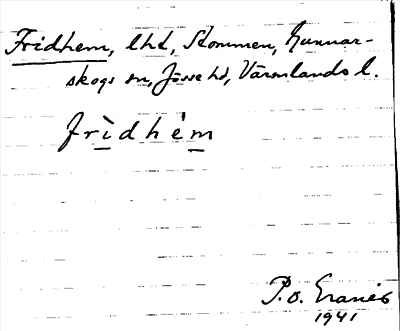 Fridhem, lht, Stommen, Gunnar-
skogs sn, Jösse hd, Värmlands l.
frìdhém
P.o. Granér
1941